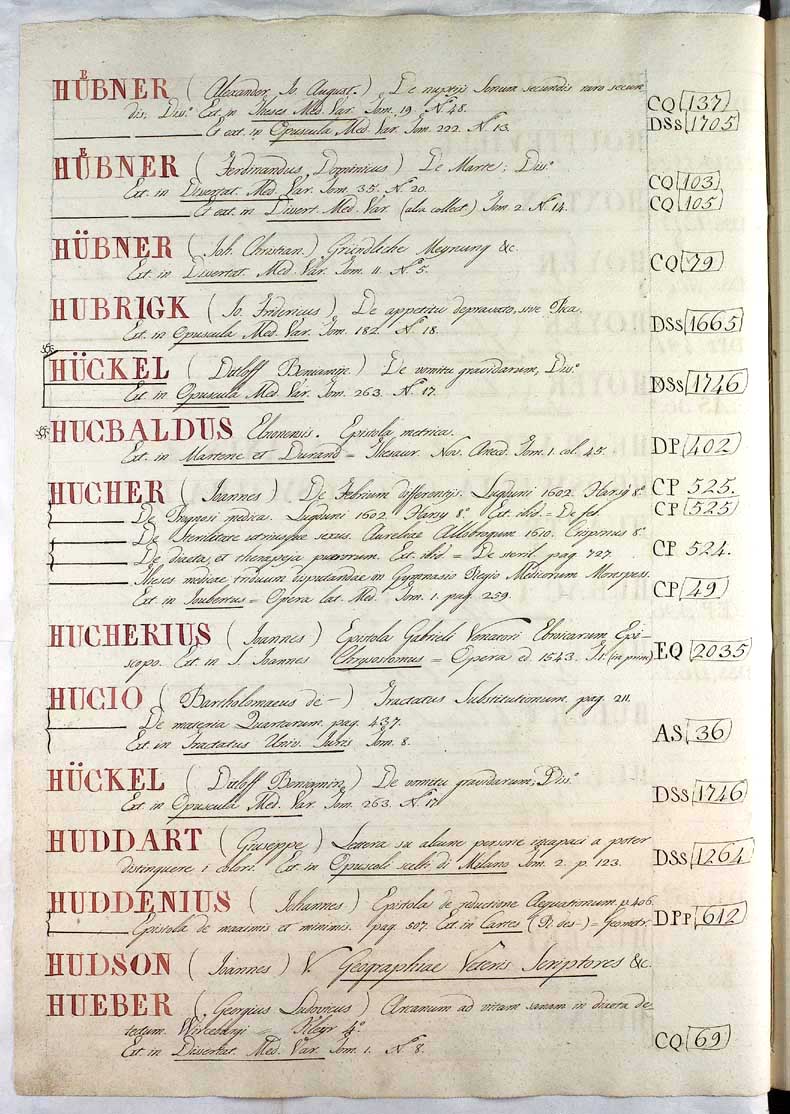 HÜBNER (Alexander Io. August.) De nuptiis sonum secundis raro secun
dis, Diss. Ext. in Theses Med. Var. Tom. 19. N.° 48. CQ 137
——— Et ext. in Opuscula Med. Var. Tom. 222. N.° 13. DSs 1705
HÜBNER (Ferdinandus, Dominicus) De Marte; Diss.
Ext. in Dissertat. Med. Var. Tom. 35. N.° 20. CQ 103
——— Et ext. in Dissert. Med. Var. (alia collect.) Tom 2. N.° 14. CQ 105
HÜBNER (Joh. Christian.) Gründliche Meynung &c.
Ext. in Dissertat. Med. Var. Tom. 11. N.° 5. CQ 79
HUBRIGK (Io. Fridericus) De appetitu depravato, sive Pica.
Ext. in Opuscula Med. Var. Tom. 182. N.° 18. DSs 1665
HÜCKEL (Ditloff Beniamin) De vomitu gravidarum, Diss.
Ext. in Opuscula Med. Var. Tom. 263. N.° 17. DSs 1746
HUCBALDUS Elnonensis. Epistola metrica.
Ext. in Martene et Durand = Thesaur. Nov. Anecd. Tom. 1. col. 45. DP 402
HUCHER (Ioannes) De Febrium differentiis. Lugduni 1602. Harsy 8.° CP 525.
——— De Prognosi medica. Lugduni 1602. Harsy 8.° Ext. ibid = De feb. CP 525
——— De Sterilitate utriusque sexus. Aureliae Allobrogum 1610. Crispinus 8.°
——— De diaeta, et therapeja puerorum. Ext. ibid = De steril. pag. 727. CP 524.
——— Theses medicae triduum disputandae in Gymnasio Regio Medicorum Monspess.
Ext. in Joubertus = Opera lat. Med. Tom. 1. pag. 259. CP 49
HUCHERIUS (Ioannes) Epistola Gabrieli Venatori Ebnicarum Epi-
scopo. Ext. in S. Joannes Chrysostomus = Opera ed. 1543. It: (in prim) EQ 2035
HUCIO (Bartholomaeus de—) Tractatus Substitutionum. pag. 211.
——— De materia Quartarum. pag. 437.
Ext. in Tractatus Univ. Juris Tom. 8. AS 36
HÜCKEL (Ditloff Beniamin) De vomitu gravidarum; Diss.
Ext. in Opuscula Med. Var. Tom. 263. N.° 17 DSs 1746
HUDDART (Giuseppe) Lettera su alcune persone incapaci a poter
distinguere i colori. Ext. in Opuscoli scelti di Milano Tom. 2. p. 123. DSs 1264
HUDDENIUS (Johannes) Epistola de reductione Aequationum. p. 406.
——— Epistola de maximis et minimis. pag. 507. Ext. in Cartes (R. des—) = Geometr. DPp 612
HUDSON (Ioannes) V. Geographiae Veteris Scriptores &c.
HUEBER (Georgius Ludovicus) Arcanum ad vitam sanam in diaeta de-
tectum. Wirceburgi = Kleyr 4.°
Ext. in Dissertat. Med. Var. Tom. 1. N.° 8. CQ 69